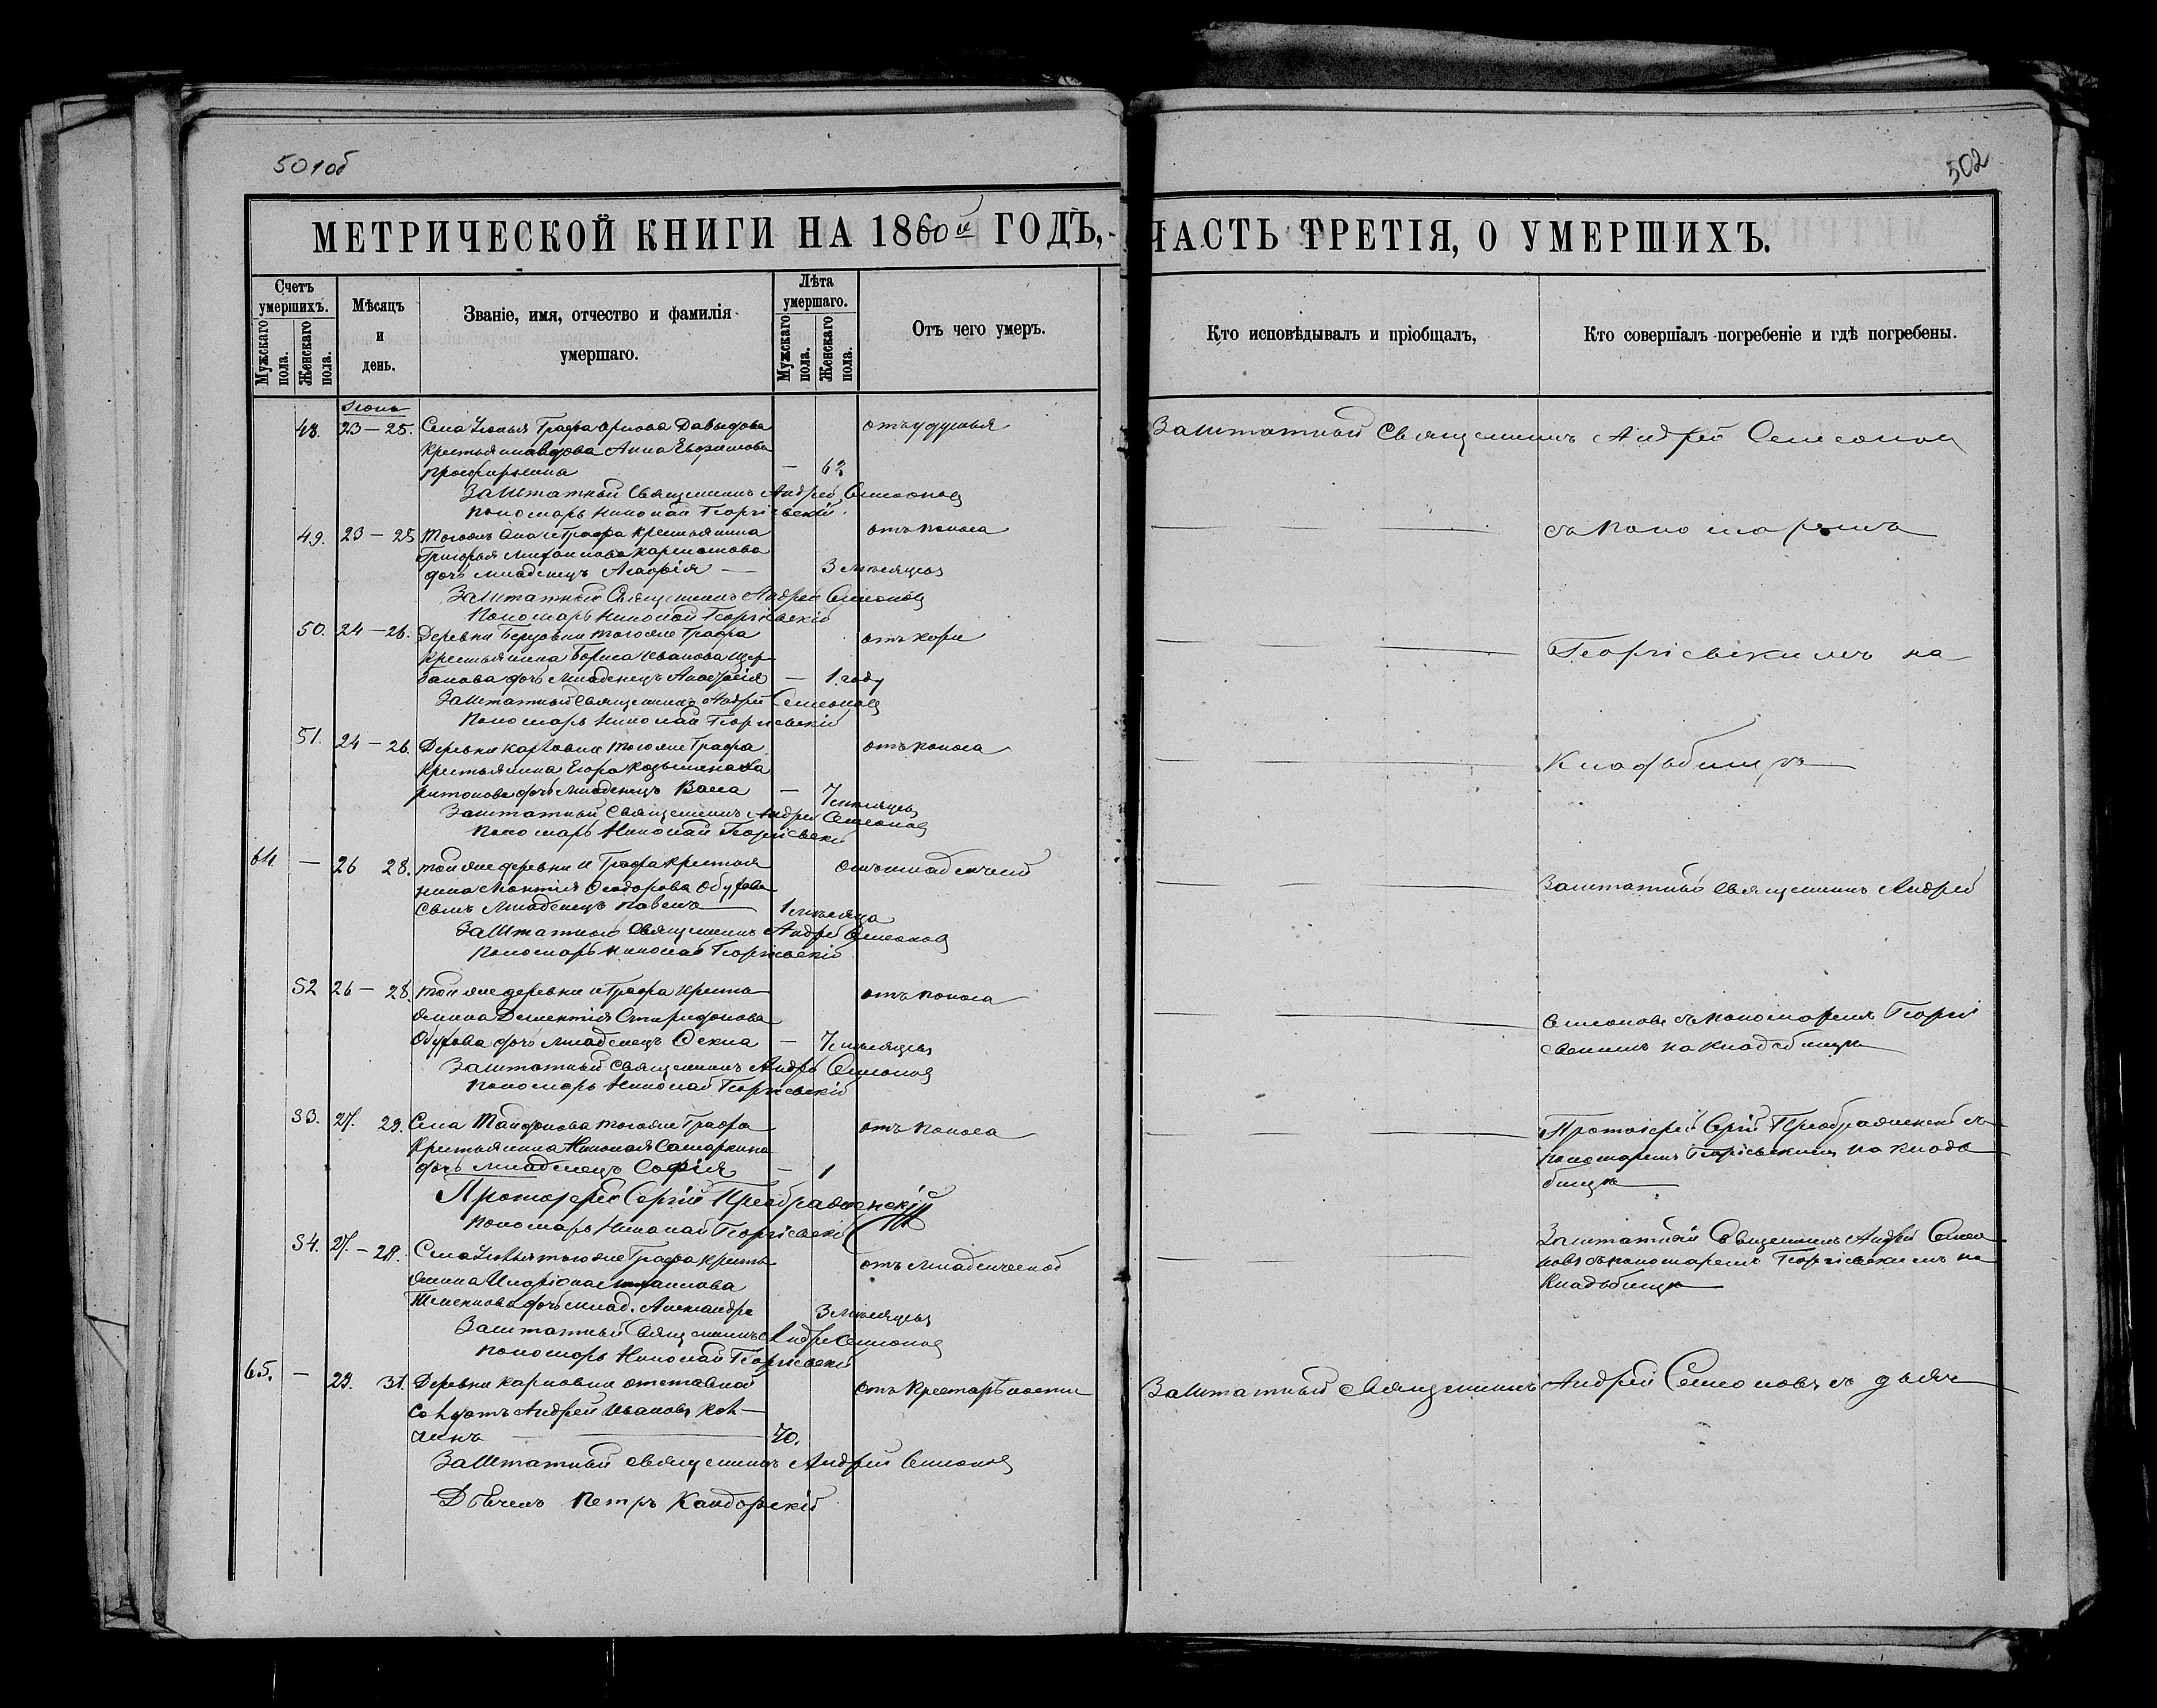 501об
502
МЕТРИЧЕСКОЙ КНИГИ НА 1860й ГОДЪ, ЧАСТЬ ТРЕТІЯ, О УМЕРШИХЪ.
Счетъ умершихъ.
Мужскаго пола.
Женскаго пола.
Мѣсяцъ и день.
Званіе, имя, отчество и фамилія умершаго.
Лѣта умершаго.
Мужскаго пола.
Женскаго пола.
Отъ чего умеръ.
Кто исповѣдывалъ и пріобщалъ,
Кто совершалъ погребеніе и гдѣ погребены.
48. 23 – 25. Села Графа Орлова Давыдова отъ удушья Заштатный Священникъ Андрей Семеновъ
крестьянина вдова Анна Евфимова
— 62
Заштатный Священникъ Андрей Семеновъ
Пономарь Николай Георгіевскій
49. 23 – 25 Тогожъ села и Графа крестьянина отъ поноса съ пономаремъ
Григорья
дочь младенецъ — 3 мѣсяцевъ
Заштатный Священникъ Андрей Семеновъ
Пономарь Николай Георгіевскій
50. 24 – 26. Деревни тогоже Графа отъ кори Георгіевскимъ на
крестьянина Бориса Иванова Щер
бакова дочь младенецъ — 1. году
Заштатный Священникъ Андрей Семеновъ
Пономарь Николай Георгіевскій
51. 24 – 26. Деревни Карповки тогоже Графа отъ поноса кладбищѣ
крестьянина Егора Козьмина Ха
ритонова дочь младенецъ Васса — 7 мѣсяцевъ
Заштатный Священникъ Андрей Семеновъ
Пономарь Николай Георгіевскій
64. — 26 28. тойже деревни и Графа крестья Заштатный Священникъ Андрей
нина Ѳеодорова
сынъ младенецъ Павелъ 1 мѣсяца
Заштатный Священникъ Андрей Семеновъ
Пономарь Николай Георгіевскій
52 26 – 28. тойже деревни и Графа кресть отъ поноса
янина Дементія Спиридонова Семеновъ съ пономаремъ Георгі
дочь младенецъ Ѳекла — 7 мѣсяцевъ евскимъ на кладбищѣ
Заштатный Священникъ Андрей Семеновъ
Пономарь Николай Георгіевскій
53. 27. 29. Села тогоже Графа отъ поноса Протоіерей Сергій Преображенскій съ
крестьянина Николая Самаркина пономаремъ Георгіевскимъ на кладб
дочь младенецъ Софія — 1 бищѣ
Протоіерей Сергій Преображенскій
Пономарь Николай Георгіевскій
54. 27. – 29. Села тогоже Графа кресть отъ младенческой Заштатный Священникъ Андрей Семе
янина Иларіона новъ съ пономаремъ Георгіевскимъ на
дочь млад. Александра 3 мѣсяцевъ Кладбищѣ
Заштатный Священникъ Андрей Семеновъ
Пономарь Николай Георгіевскій
65. — 29. 31. Деревни Карповки отставной отъ престарѣлости Заштатный Священникъ Андрей Семеновъ съ дьяч
солдатъ Андрей Ивановъ
70.
Заштатный Священникъ Андрей Семеновъ
Дьячекъ Петръ Кандорскій